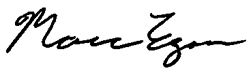 Marc Egan